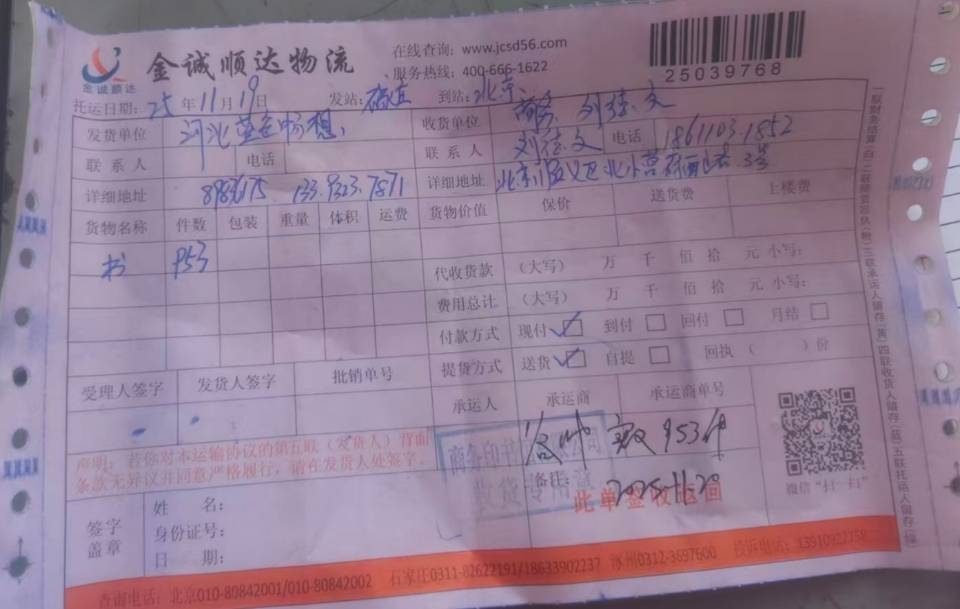 金诚顺达物流
金诚顺达
在线查询: www.jcsd56.com
服务热线: 400-666-1622
25039768
托运日期: 25 年 11 月 19 日 发站: 到站: 北京
发货单位 河北 收货单位 商务 刘徳文
联系人 电话 联系人 刘徳文 电话 18611031852
详细地址 133 7871 详细地址 北京顺义区北小营 3号
货物名称 件数 包装 重量 体积 运费 货物价值 保价 送货费 上楼费
书 953
代收货款 (大写) 万 千 佰 拾 元 小写:
费用总计 (大写) 万 千 佰 拾 元 小写:
付款方式 现付 到付 回付 月结
提货方式 送货 自提 回执 ( ) 份
受理人签字 发货人签字 批销单号 承运人 承运商 承运商单号
953件
声明: 若你对本运输协议的第五联 (发货人) 背面
条款无异议并同意严格履行, 请在发货人处签字。
商务印书
收货专用章
备注:
2025-11-20
此单签收返回
微信“扫一扫”
签字
盖章
姓 名:
身份证号:
日 期:
查询电话: 北京010-80842001/010-80842002 石家庄0311-82622191/18633902237 涿州0312-3697600 投诉电话: 13910922758